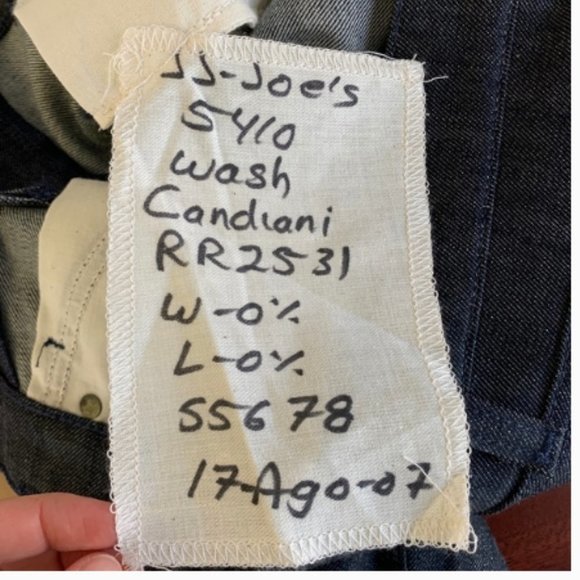 JJ-Joe's
5410
wash
Candiani
RR2531
W-0%
L-0%
55678
17-Ago-07